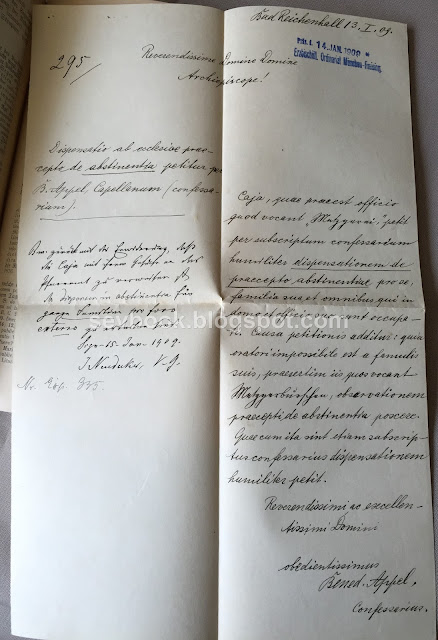 Bad Reichenhall 13. I. 09.
Präs. d. 14. JAN. 1909
Erzbischöfl. Ordinariat München-Freising.
295/
Reverendissime Domine Domine
Archiepiscope!
Dispensatio ab ecclesiae prae-
cepto de abstinentia petitur per
B. Appel, Capellanum (confessa-
rium).
zurück mit der Erwiderung, daß
der Caja mit ihrem Gesuche an das
Pfarramt zu verweisen ist
in abstinentia für
ganze Familie pro foro
externo
15. Jan. 1909.
V. G.
Caja, quae praeest officio
quod vocant "Metzgerei" petit
per subscriptum confessarium
humiliter dispensationem de
praecepto abstinentiae pro se,
familia sua et omnibus qui in
domo et officio sua sunt occupa-
ti. Causa petitionis additur: quia
oratori impossibile est a famulis
suis, praesertim iis quos vocant
Metzgerburschen, observationem
praecepti de abstinentia poscere.
Quae cum ita sint etiam subscrip-
tus confessarius dispensationem
humiliter petit.
Reverendissimi ac excellen-
tissimi Domini
obedientissimus
Bened. Appel,
Confessarius.